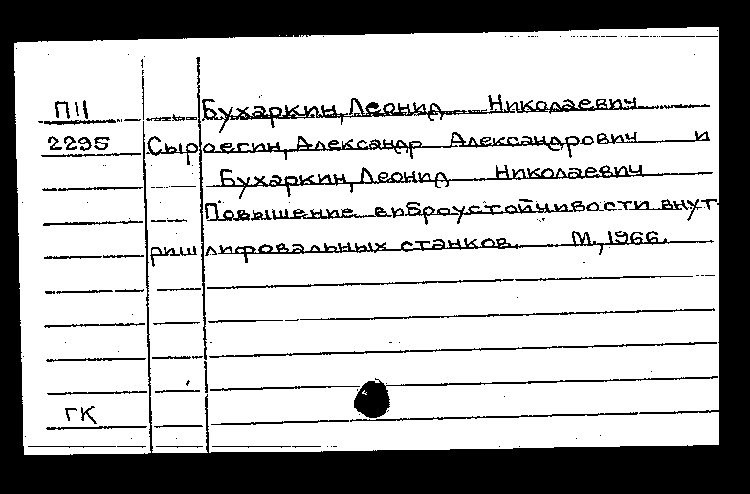 ПIII Бухаркин, Леонид Николаевич
2295 Сыроегин, Александр Александрович и
Бухаркин, Леонид Николаевич
Повышение виброустойчивости внут-
ришлифовальных станков. М., 1966.
ГК